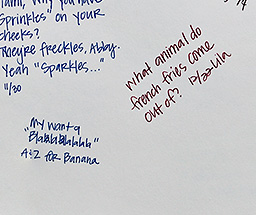 why you have
Sprinkles" on your
cheeks?
They're freckles, Abby.
Yeah "Sparkles..."
11/30
what animal do
french fries come
out of? 12/22 Lila
"My want a
Blalalalalalala"
A+Z for Banana